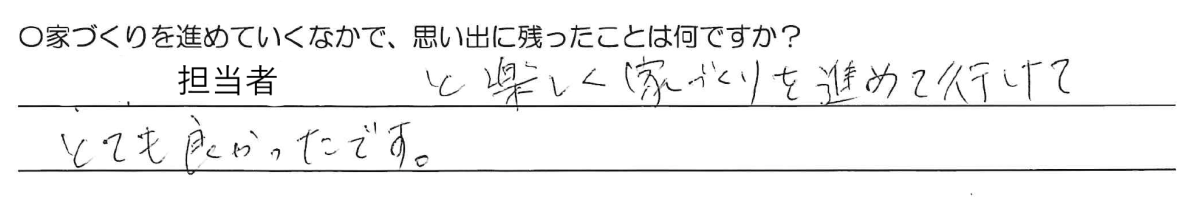 〇家づくりを進めていくなかで、思い出に残ったことは何ですか？
担当者 と楽しく家づくりを進めて行けて
とても良かったです。